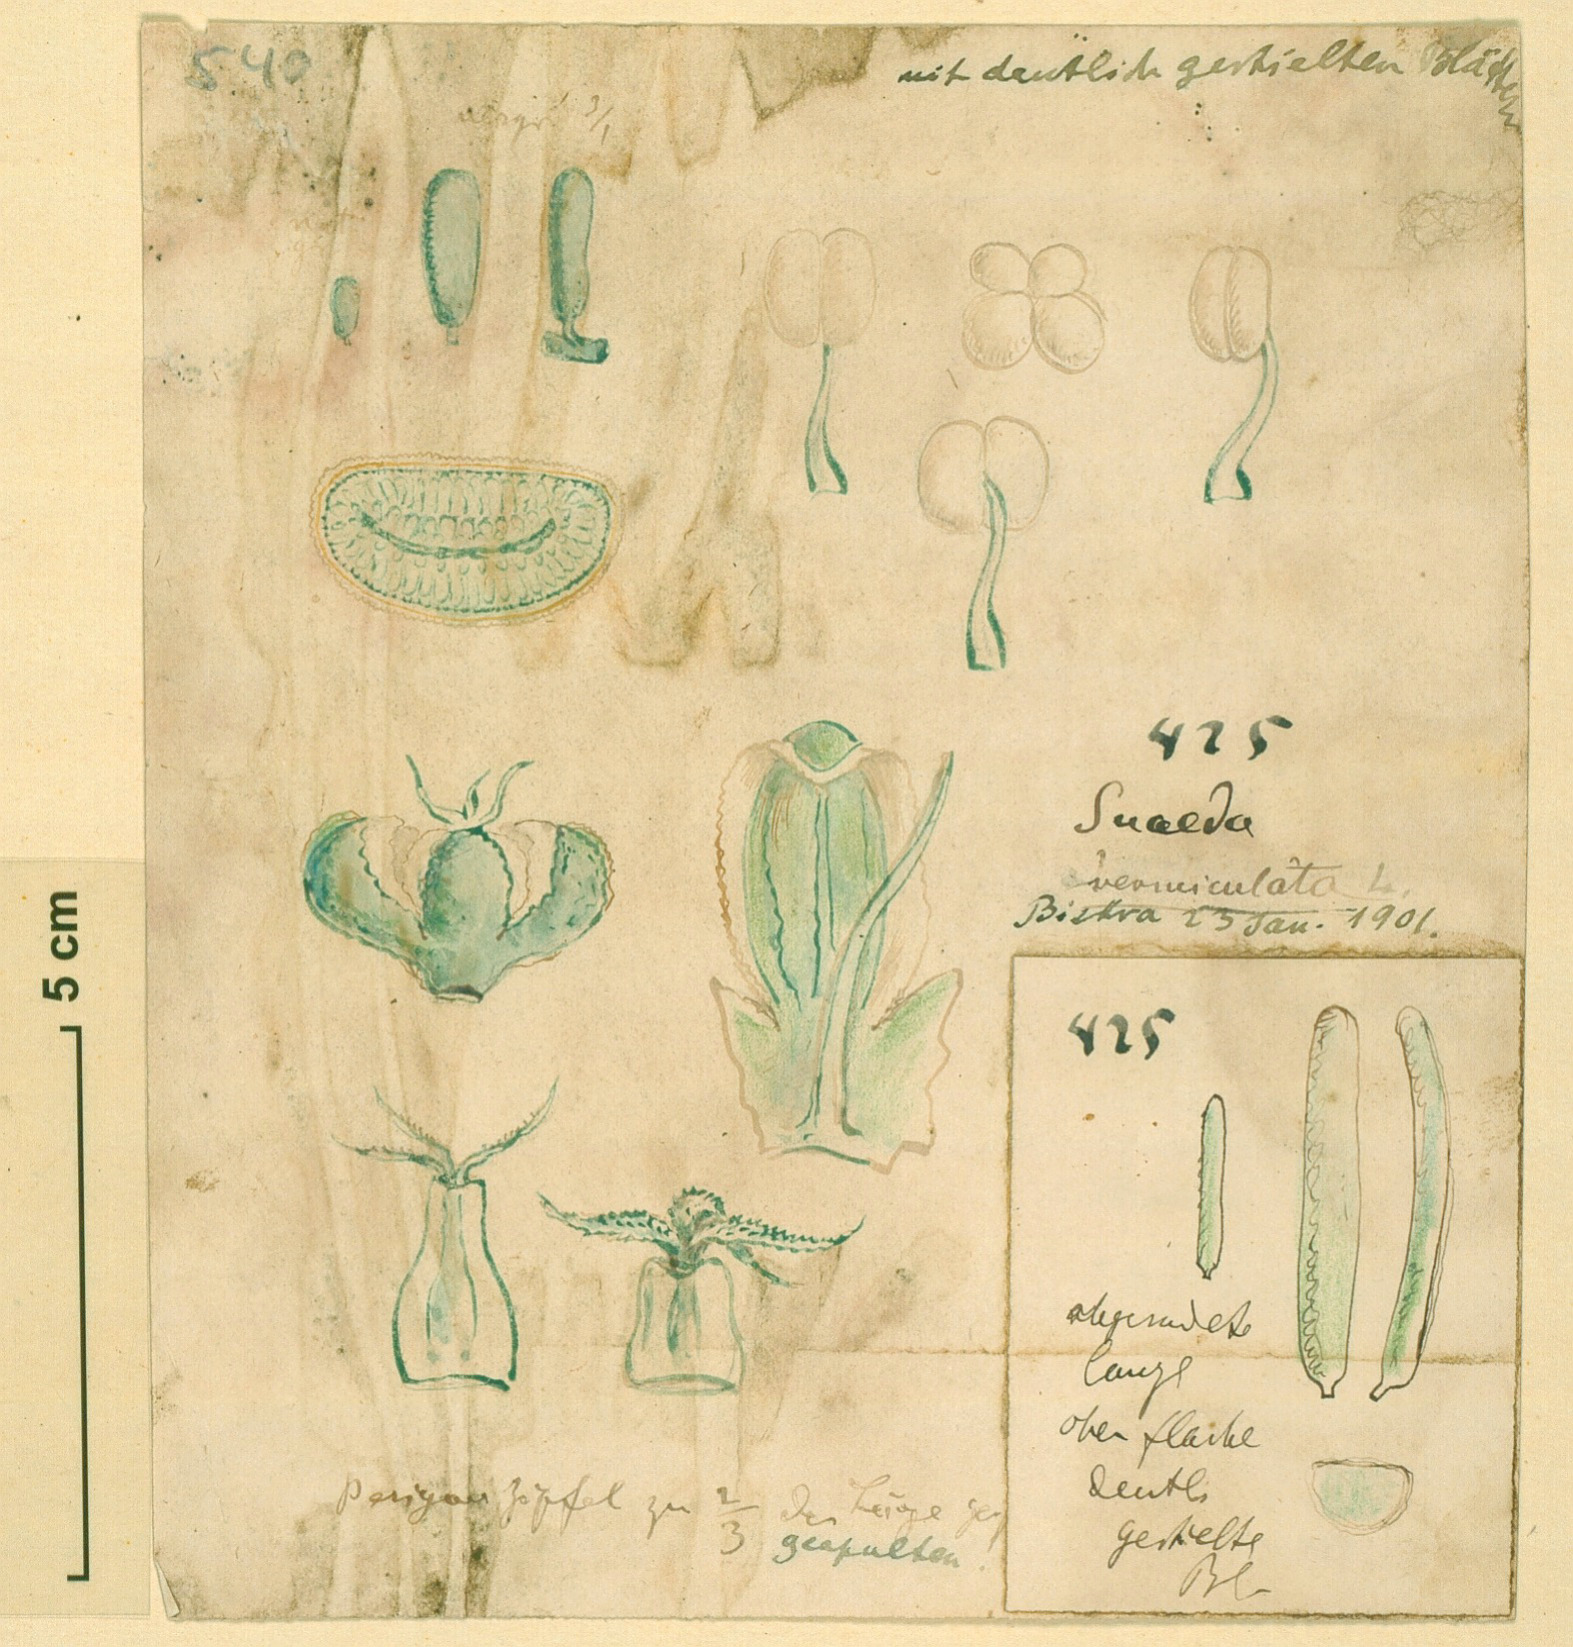 540
mit deutlich gestielten Blättern
3/1
425
Suaeda
vermiculata L.
Biskra 23 Jan. 1901.
5 cm
425
abgerundete
lange
oben flache
deutl.
gestielte
Bl.
Perigon Zipfel zu 2/3 der Länge
gespalten.